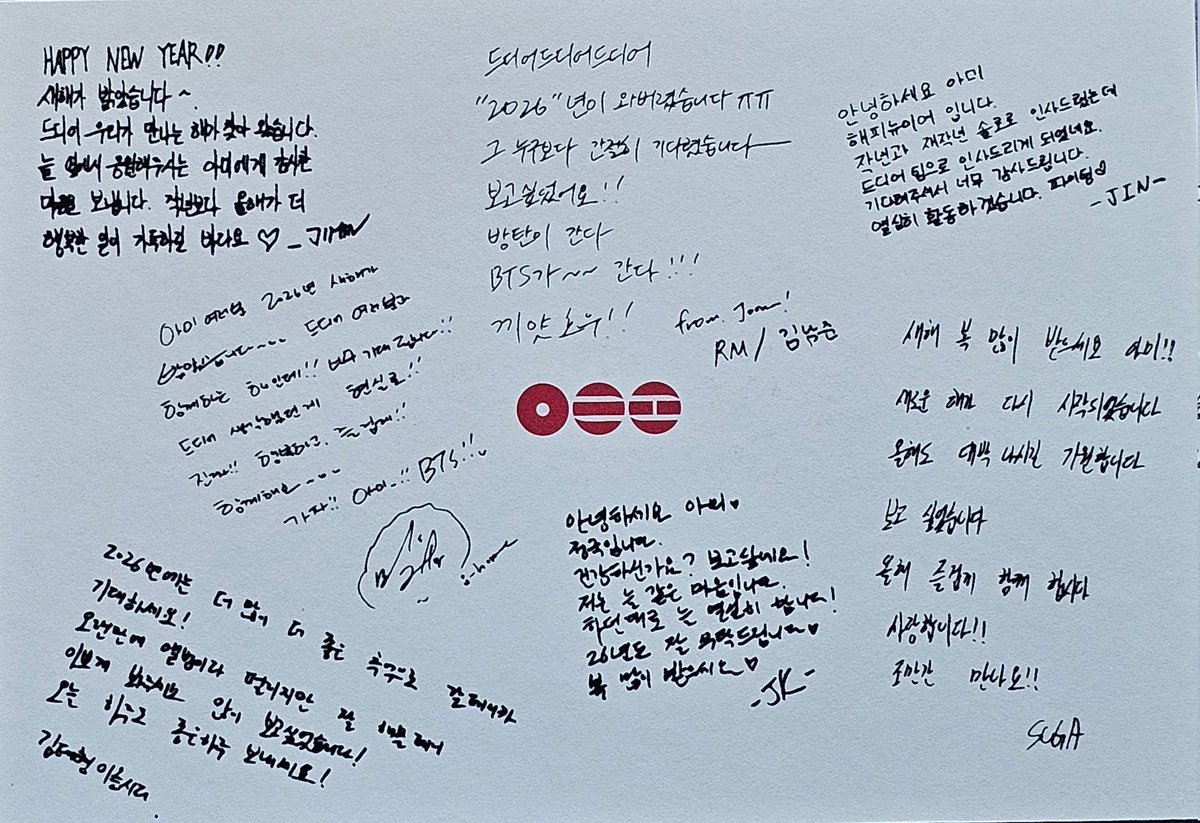 HAPPY NEW YEAR!!
새해가 밝았습니다~.
드디어 우리가 만나는 해가 찾아 왔습니다.
늘 옆에서 응원해주시는 아미에게 감사한
마음을 보냅니다. 작년보다 올해가 더
행복한 일이 가득하길 바라요 ♡ - JIMIN
드디어드디어드디어
"2026"년이 와버렸습니다 ㅠㅠ
그 누구보다 간절히 기다렸습니다
보고싶었어요!!
방탄이 간다
BTS가~~ 간다!!!
끼얏호우!!
from. Joon!
RM / 김남준
안녕하세요 아미
해피뉴이어 입니다.
작년과 재작년 솔로로 인사드렸는데
드디어 팀으로 인사드리게 되었네요.
기다려주셔서 너무 감사드립니다.
열심히 활동하겠습니다. 파이팅♡
-JIN-
아미 여러분 2026년 새해가
밝았습니다~~~ 드디어 여러분과
함께하는 해인데!! 너무 기대됩니다!!
드디어 생각했던게 현실로!!
진짜!! 행복하고, 즐겁게!!
함께해요~~~
가자!! 아미~!! BTS!!
j-hope
새해 복 많이 받으세요 아미!!
새로운 해가 다시 시작되었습니다
올해도 대박 나시길 기원합니다
보고 싶었습니다
올해 즐겁게 함께 합시다
사랑합니다!!
조만간 만나요!!
SUGA
2026년에는 더 많이 더 좋은 추억으로 갈테니까
기대하세요!
오랜만에 앨범이라 떨리지만 잘 해볼테니
이쁘게 봐주시고 많이 보고싶었습니다!
오늘 하루도 좋은하루 보내세요!
김태형 이올시다.
안녕하세요 아미♥
정국입니다.
건강하신가요? 보고싶네요!
저는 늘 같은 마음입니다.
하던대로 늘 열심히 합니다!
26년도 잘 부탁드립니다♥
복 많이 받으시오♡
-JK-